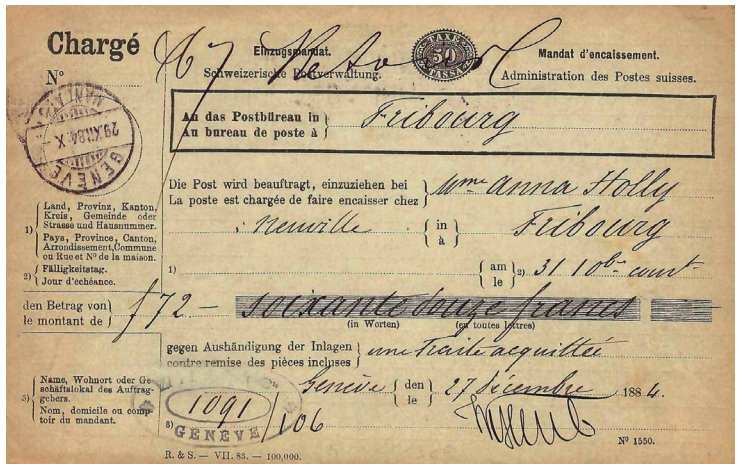 Chargé
Nº
67 Retour
Einzugsmandat.
Schweizerische Postverwaltung.
TAXE
50
TASSA
Mandat d'encaissement.
Administration des Postes suisses.
GENÈVE
29.XII.84.X
MANDATS
An das Postbüreau in
Au bureau de poste à
Fribourg
Die Post wird beauftragt, einzuziehen bei
La poste est chargée de faire encaisser chez
Mme Anna Holly
Neuville
in
à
Fribourg
1) Land, Provinz, Kanton,
Kreis, Gemeinde oder
Strasse und Hausnummer.
Pays, Province, Canton,
Arrondissement, Commune
ou Rue et Nº de la maison.
2) Fälligkeitstag.
Jour d'echéance.
1)
am
le
2) 31 10bre court
den Betrag von
le montant de
f 72.–
soixante douze francs
(in Worten) (en toutes lettres)
gegen Aushändigung der Inlagen
contre remise des pièces incluses
une Traite acquittée
Genève
den
le
27 décembre 1884.
5) Name, Wohnort oder Ge-
schäftslokal des Auftrag-
gebers.
Nom, domicile ou comp-
toir du mandant.
1091
GENÈVE
3)
106
Nº 1550.
R. & S. — VII. 83. — 100,000.